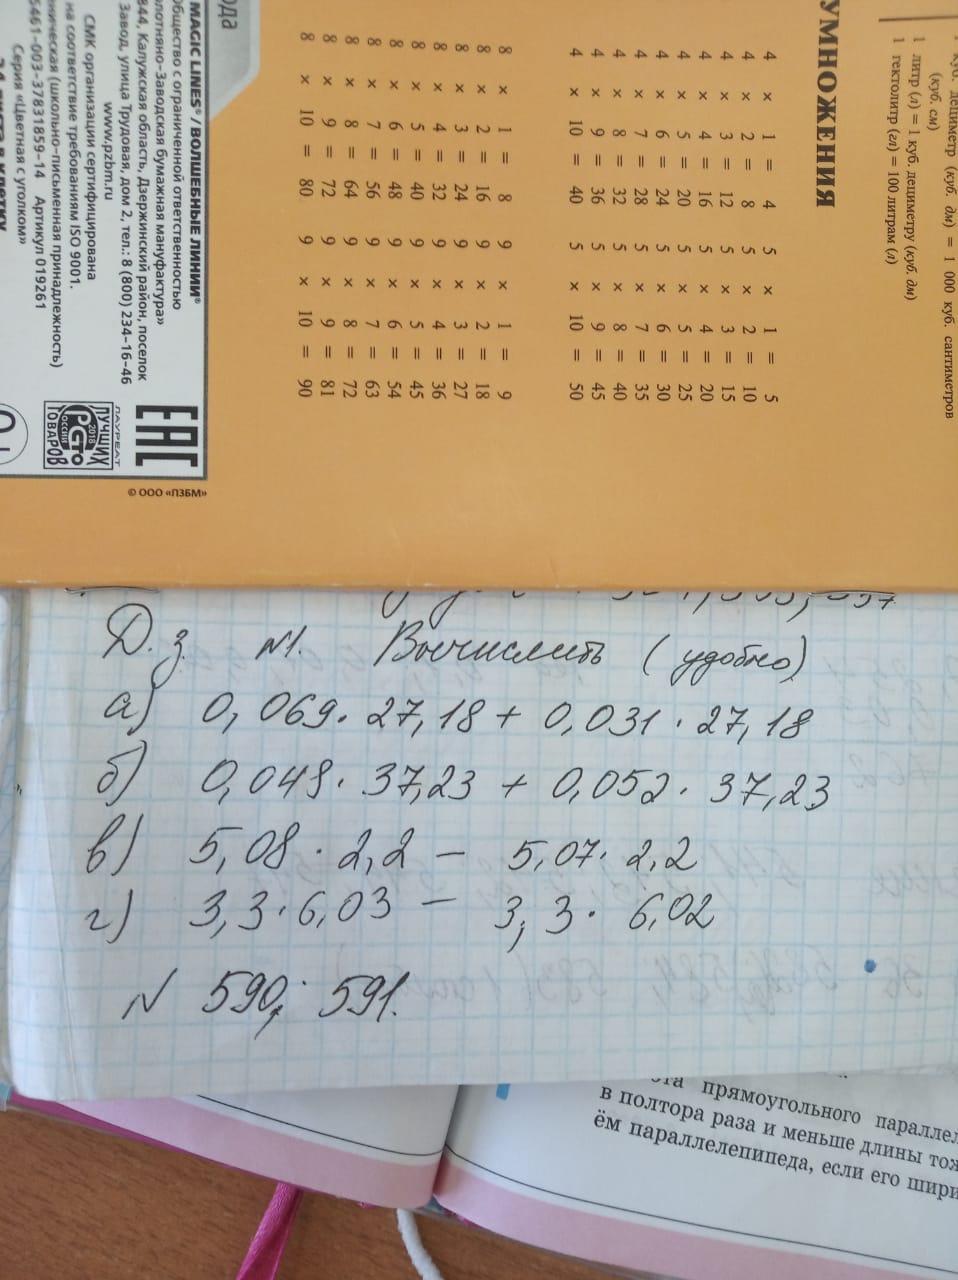 УМНОЖЕНИЯ
куб. дециметр (куб. дм) = 1 000 куб. сантиметров
(куб. см)
1 литр (л) = 1 куб. дециметру (куб. дм)
1 гектолитр (гл) = 100 литрам (л)
4 × 1 = 4 5 × 1 = 5
4 × 2 = 8 5 × 2 = 10
4 × 3 = 12 5 × 3 = 15
4 × 4 = 16 5 × 4 = 20
4 × 5 = 20 5 × 5 = 25
4 × 6 = 24 5 × 6 = 30
4 × 7 = 28 5 × 7 = 35
4 × 8 = 32 5 × 8 = 40
4 × 9 = 36 5 × 9 = 45
4 × 10 = 40 5 × 10 = 50
8 × 1 = 8 9 × 1 = 9
8 × 2 = 16 9 × 2 = 18
8 × 3 = 24 9 × 3 = 27
8 × 4 = 32 9 × 4 = 36
8 × 5 = 40 9 × 5 = 45
8 × 6 = 48 9 × 6 = 54
8 × 7 = 56 9 × 7 = 63
8 × 8 = 64 9 × 8 = 72
8 × 9 = 72 9 × 9 = 81
8 × 10 = 80 9 × 10 = 90
MAGIC LINES® / ВОЛШЕБНЫЕ ЛИНИИ®
общество с ограниченной ответственностью
Полотняно-Заводская бумажная мануфактура»
844, Калужская область, Дзержинский район, поселок
Завод, улица Трудовая, дом 2, тел.: 8 (800) 234-16-46
www.pzbm.ru
СМК организации сертифицирована
на соответствие требованиям ISO 9001.
(школьно-письменная принадлежность)
5461-003-37831859-14 Артикул 019261
Серия «Цветная с уголком»
24 листа в клетку
EAC
ЛАУРЕАТ
ЛУЧШИХ
2018
РОССИИ
ТОВАРОВ
© ООО «ПЗБМ»
Д. з. №1. Вычислить (удобно)
а) 0,069 · 27,18 + 0,031 · 27,18
б) 0,048 · 37,23 + 0,052 · 37,23
в) 5,08 · 2,2 – 5,07 · 2,2
г) 3,3 · 6,03 – 3,3 · 6,02
N 590; 591.
прямоугольного параллел
в полтора раза и меньше длины
ём параллелепипеда, если его шири